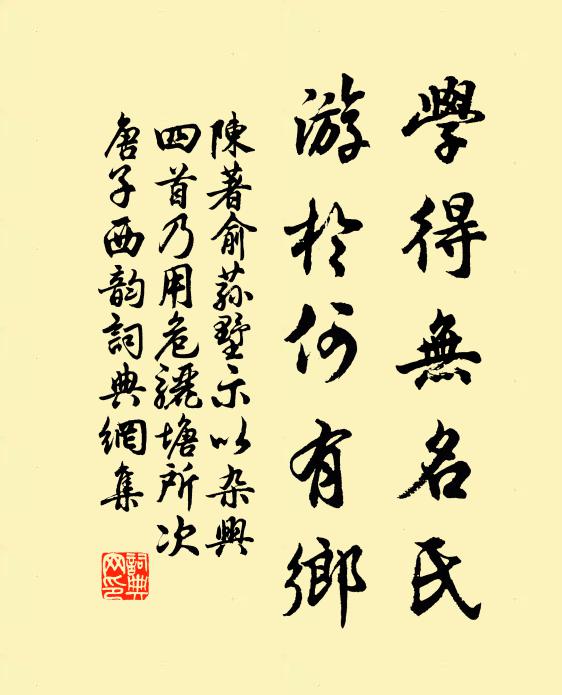 學得無名氏
游於何有鄉
陳著俞菻墅示以杂興
四首乃用危驪塘所次
唐子西韵詞典網集
詞典网印